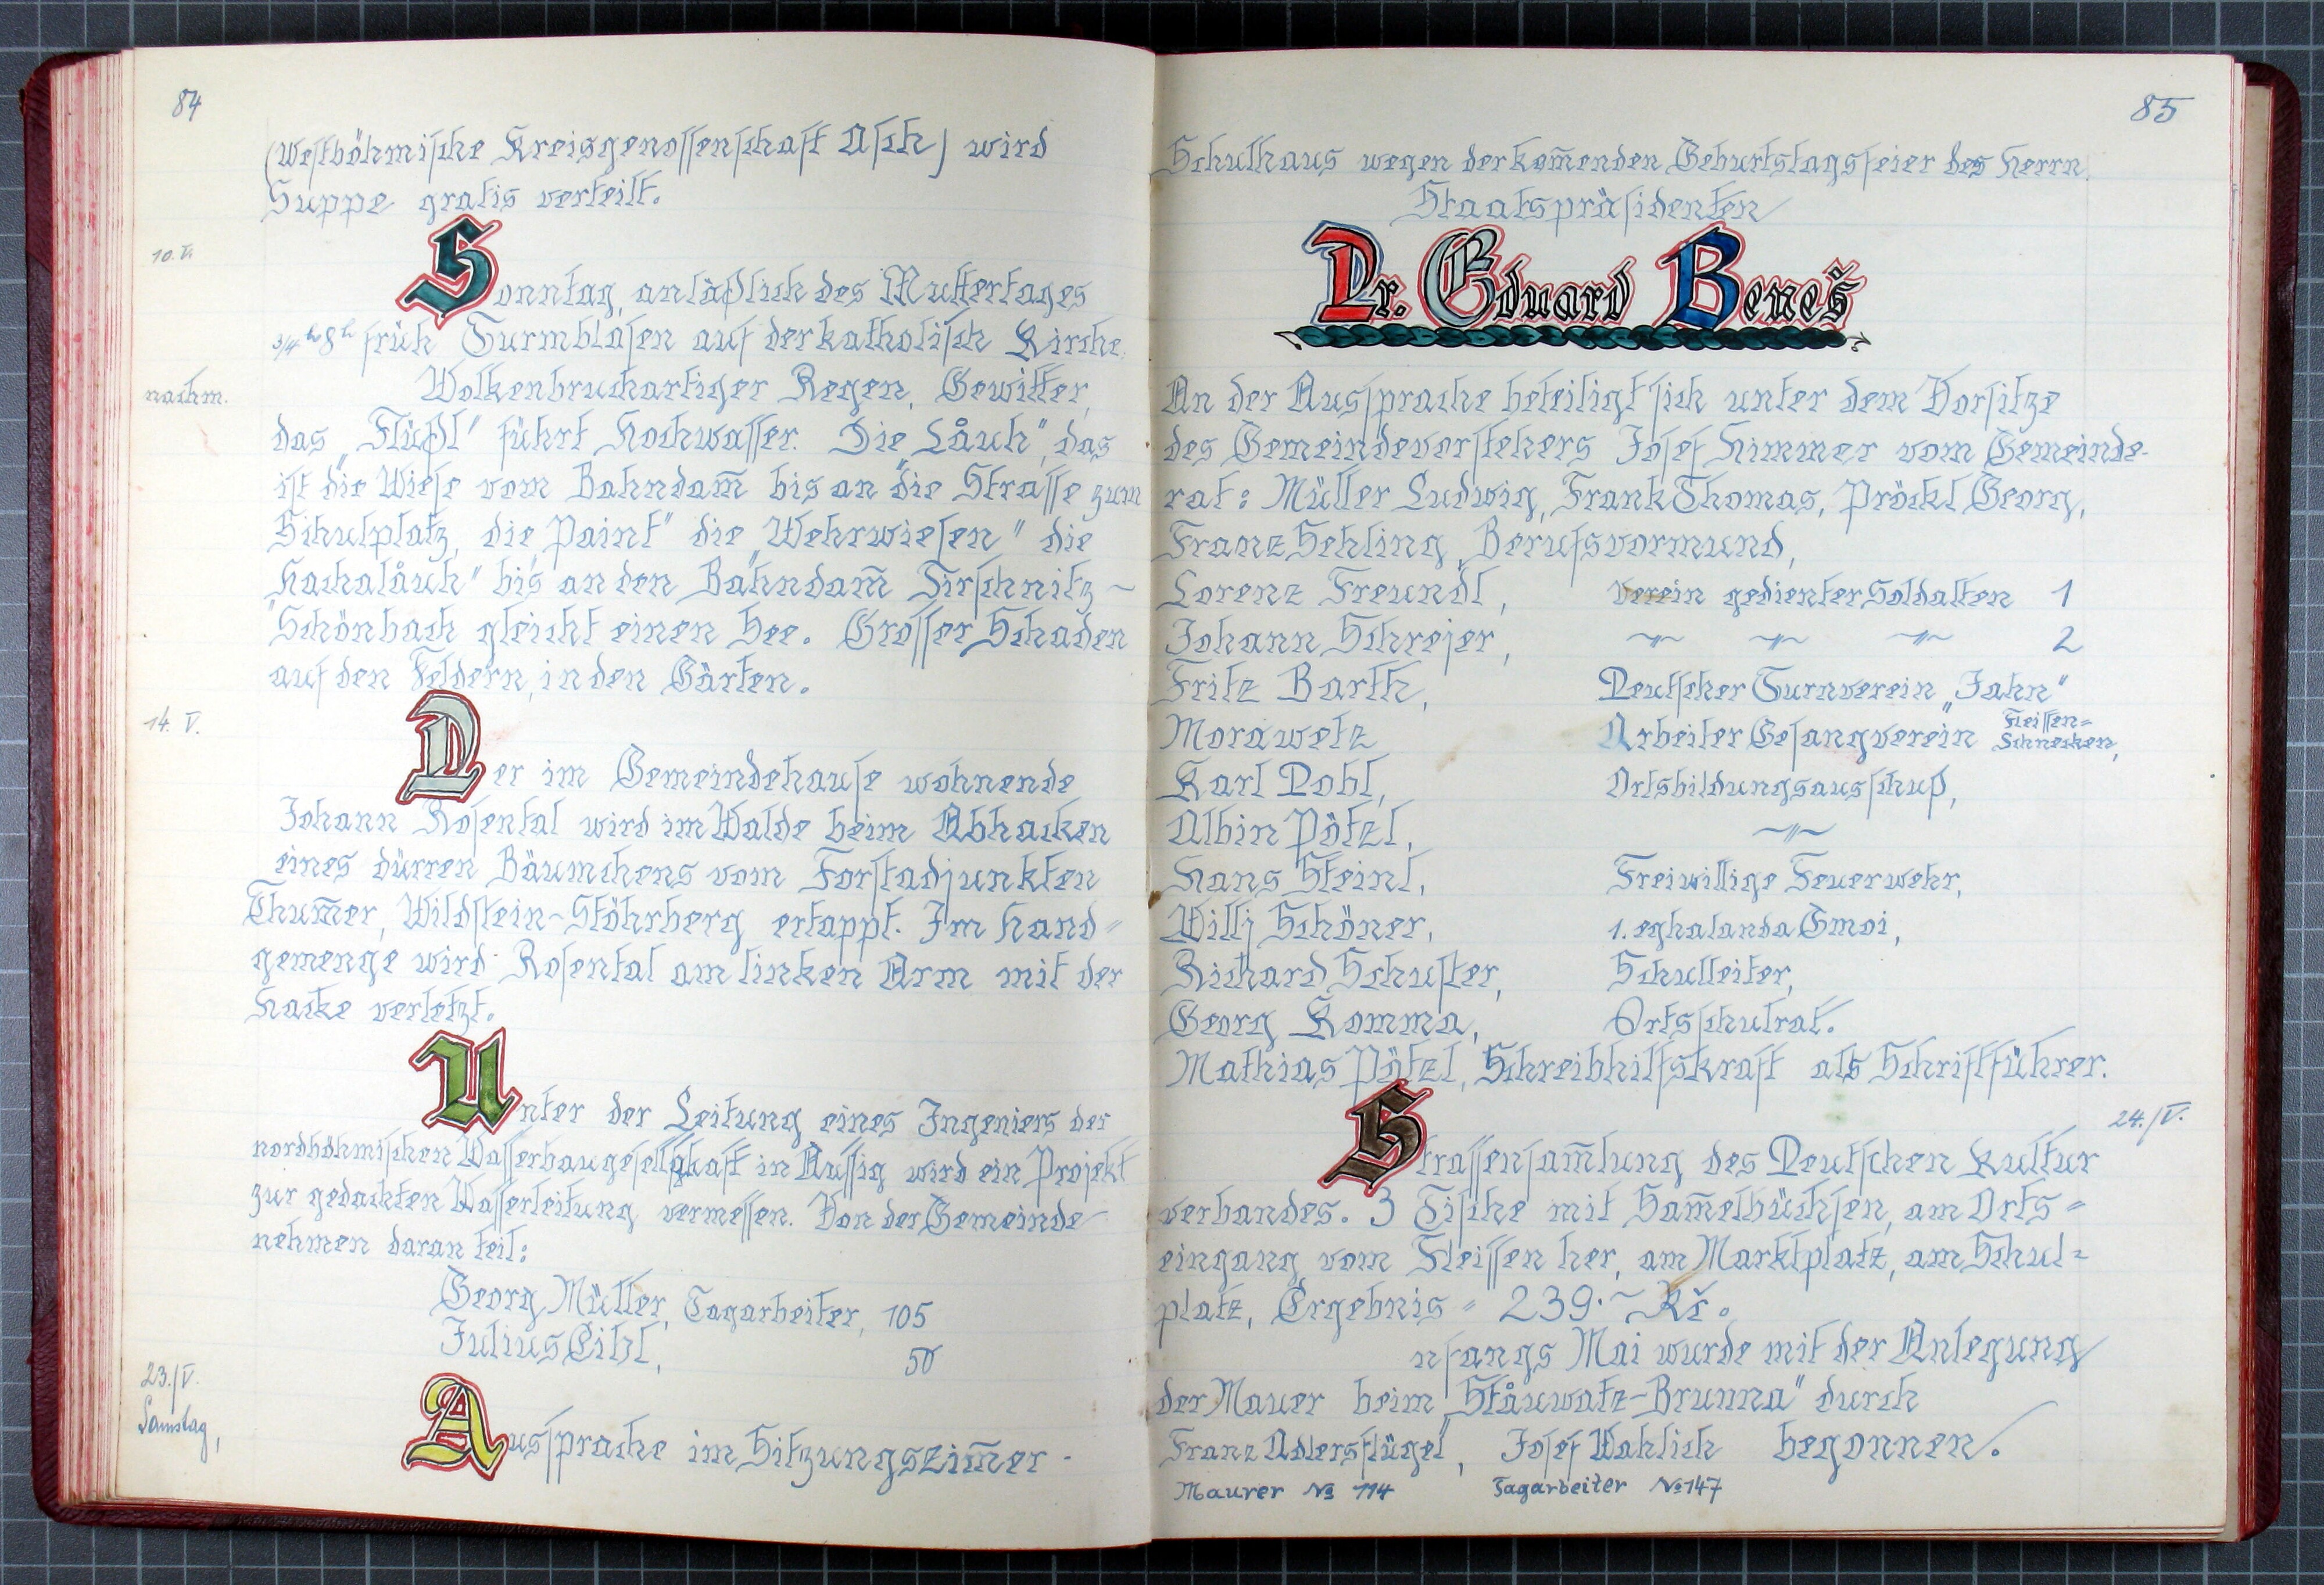 84
(Westböhmische Kreisgenossenschaft Asch) wird
Suppe gratis verteilt.
10. V.
Sonntag, anläßlich des Muttertages
3/4 8h früh Turmblasen auf der katholisch Kirche.
nachm.
Wolkenbruchartiger Regen, Gewitter,
das „Flüßl" führt Hochwasser. Die „Låuh", das
ist die Wiese vom Bahndam̄ bis an die Strasse zum
Schulplatz, die „Paint" die „Wehrwiesen" die
„Hachalåuh" bis an den Bahndam̄ Tirschnitz ~
Schönbach gleicht einen See. Grosser Schaden
auf den Feldern, in den Gärten.
14. V.
Der im Gemeindehause wohnende
Johann Rosental wird im Walde beim Abhacken
eines dürren Bäumchens vom Forstadjunkten
Thum̄er, Wildstein-Stöhrberg ertappt. Im Hand=
gemenge wird Rosental am linken Arm mit der
Hacke verletzt.
Unter der Leitung eines Ingeniers der
nordböhmischen Wasserbaugesellschaft in Aussig wird ein Projekt
zur gedachten Wasserleitung vermessen. Von der Gemeinde
nehmen daran teil:
Georg Müller, Tagarbeiter, 105
Julius Cihl, 50
23./V.
Samstag,
Aussprache im Sitzungszim̄er -
85
Schulhaus wegen der kom̄enden Geburtstagsfeier des Herrn
Staatspräsidenten
Dr. Eduard Beneš
An der Aussprache beteiligt sich unter dem Vorsitze
des Gemeindevorstehers Josef Himmer vom Gemeinde-
rat: Müller Ludwig, Frank Thomas, Pröckl Georg,
Franz Sehling, Berufsvormund,
Lorenz Freundl, Verein gedienter Soldalten 1
Johann Schrejer, ~"~ ~"~ ~"~ 2
Fritz Barth, Deutscher Turnverein „Jahn"
Morawetz Arbeiter Gesangverein Fleissen=
Schnecken,
Karl Pohl, Ortsbildungsausschuß,
Albin Pötzl, ~"~
Hans Steinl, Freiwillige Feuerwehr,
Willj Schöner, 1. eghalanda Gmoi,
Richard Schuster, Schulleiter,
Georg Komma, Ortsschulrat.
Mathias Pötzl, Schreibhilfskraft als Schriftführer.
24./V.
Strassensam̄lung des Deutschen Kultur
verbandes. 3 Tische mit Sam̄elbüchsen, am Orts=
eingang vom Fleissen her, am Marktplatz, am Schul=
platz, Ergebnis = 239.~ Kč.
nfangs Mai wurde mit der Anlegung
der Mauer beim „Ståuwatz-Brunna" durch
Franz Adlersflügel, Josef Wahlich begonnen.
Maurer № 114 Tagarbeiter №147